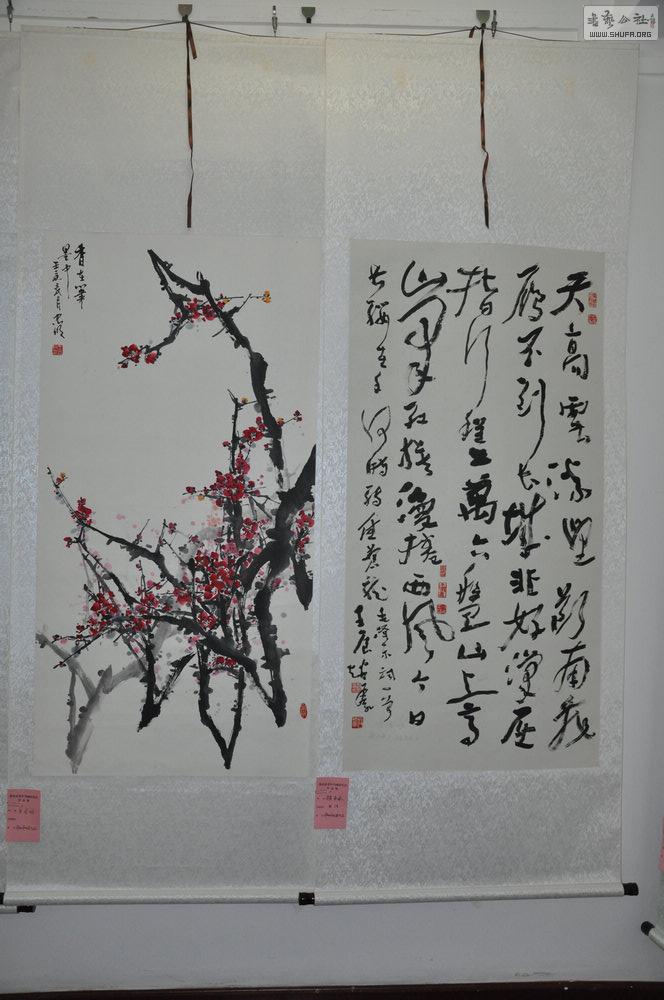 書藝公社
WWW.SHUFA.ORG
天高雲淡望斷南飛
雁不到長城非好漢屈
指行程二萬六盤山上高
峯紅旗漫捲西風今日
長纓在手何時縛住蒼龍
毛澤東詞一首
壬辰
香在筆
墨中